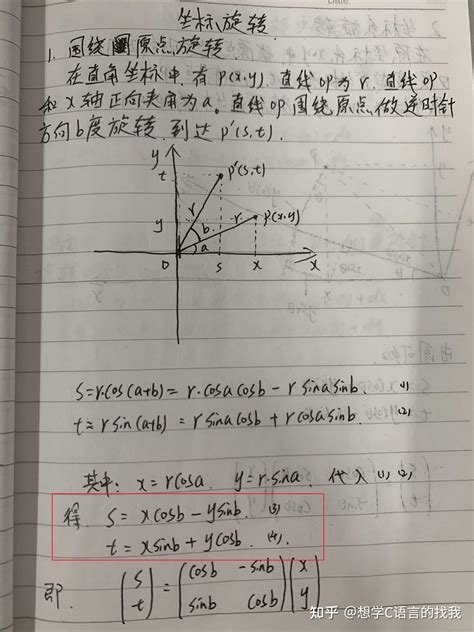 Date.
坐标旋转
1. 围绕原点旋转
在直角坐标中有 p(x,y). 直线op为r. 直线op
和x轴正向夹角为a。直线op围绕原点做逆时针
方向b度旋转.到达p'(s,t).
y
t
p'(s,t)
r
y
b
r
p(x,y)
a
0
s
x
x
S=r.cos(a+b)= r.cosa cosb - r sina sinb. (1)
t= r sin(a+b) = r sina cosb + r cosa sinb. (2)
其中: x=rcosa. y=r.sina. 代入(1),(2)
得. S= xcosb-ysinb. (3)
t= xsinb+ycosb. (4).
即. (s t) = (cosb -sinb sinb cosb) (x y)
知乎 @想学C语言的找我